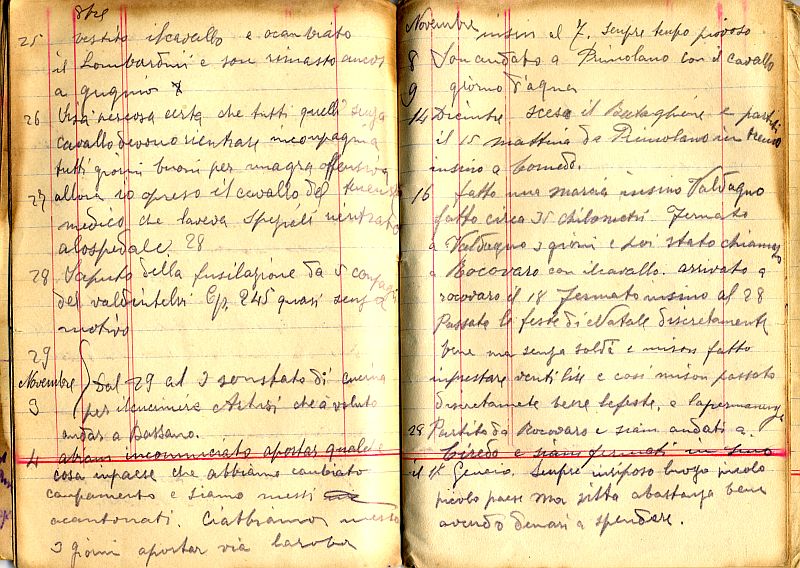 8bre
25 vestito il cavallo e scambiato
il Lombardini e son rimasto ancos
a
26 che tutti quelli senza
cavallo devono rientrare in conpagnia
tutti giorni buoni per una gra offensiva
27 allora io o preso il cavallo del tenente
medico che laveva rientrato
alospedale. 28
28 Saputo della fusilazione da 5 conpagni
del valdintelvi Cp. 245 quasi senza
motivo
29
Novembre Dal 29 al 3 son stato di cucina
3 per il cuciniere che a voluto
andar a Bassano.
4 abiam incominciato aportar qualche
cosa inpaese che abbiamo cambiato
campamento e siamo messi
acantonati. Ciabbiamo messo
3 giorni aportar via laroba
Novembre insin al 7. senpre tenpo piovoso
8 Son andato a Primolano con il cavallo
9 giorno d'aqua
14 Dicembre sceso il e partiti
il 15 mattina da Primolano in treno
insino a
16 fatto una marcia insino Valdagno
fatto circa 35 chilometri Fermato
a Valdagno 3 giorni e poi stato chiamato
a Rocovaro con il cavallo. arrivato a
rocovaro il 18 fermato insino al 28
Passato le feste di Natale discretamente
bene ma senza soldi e mison fatto
inprestare venti lire e cosi mison passato
discretamete bene lefeste, a
28 Partito da Rocovaro e siam andati a
Ciredo e siam fermati in sino
il 1º Genaio. Senpre inriposo luogo
picolo paese ma sista abastanza bene
avendo denari a spendere.